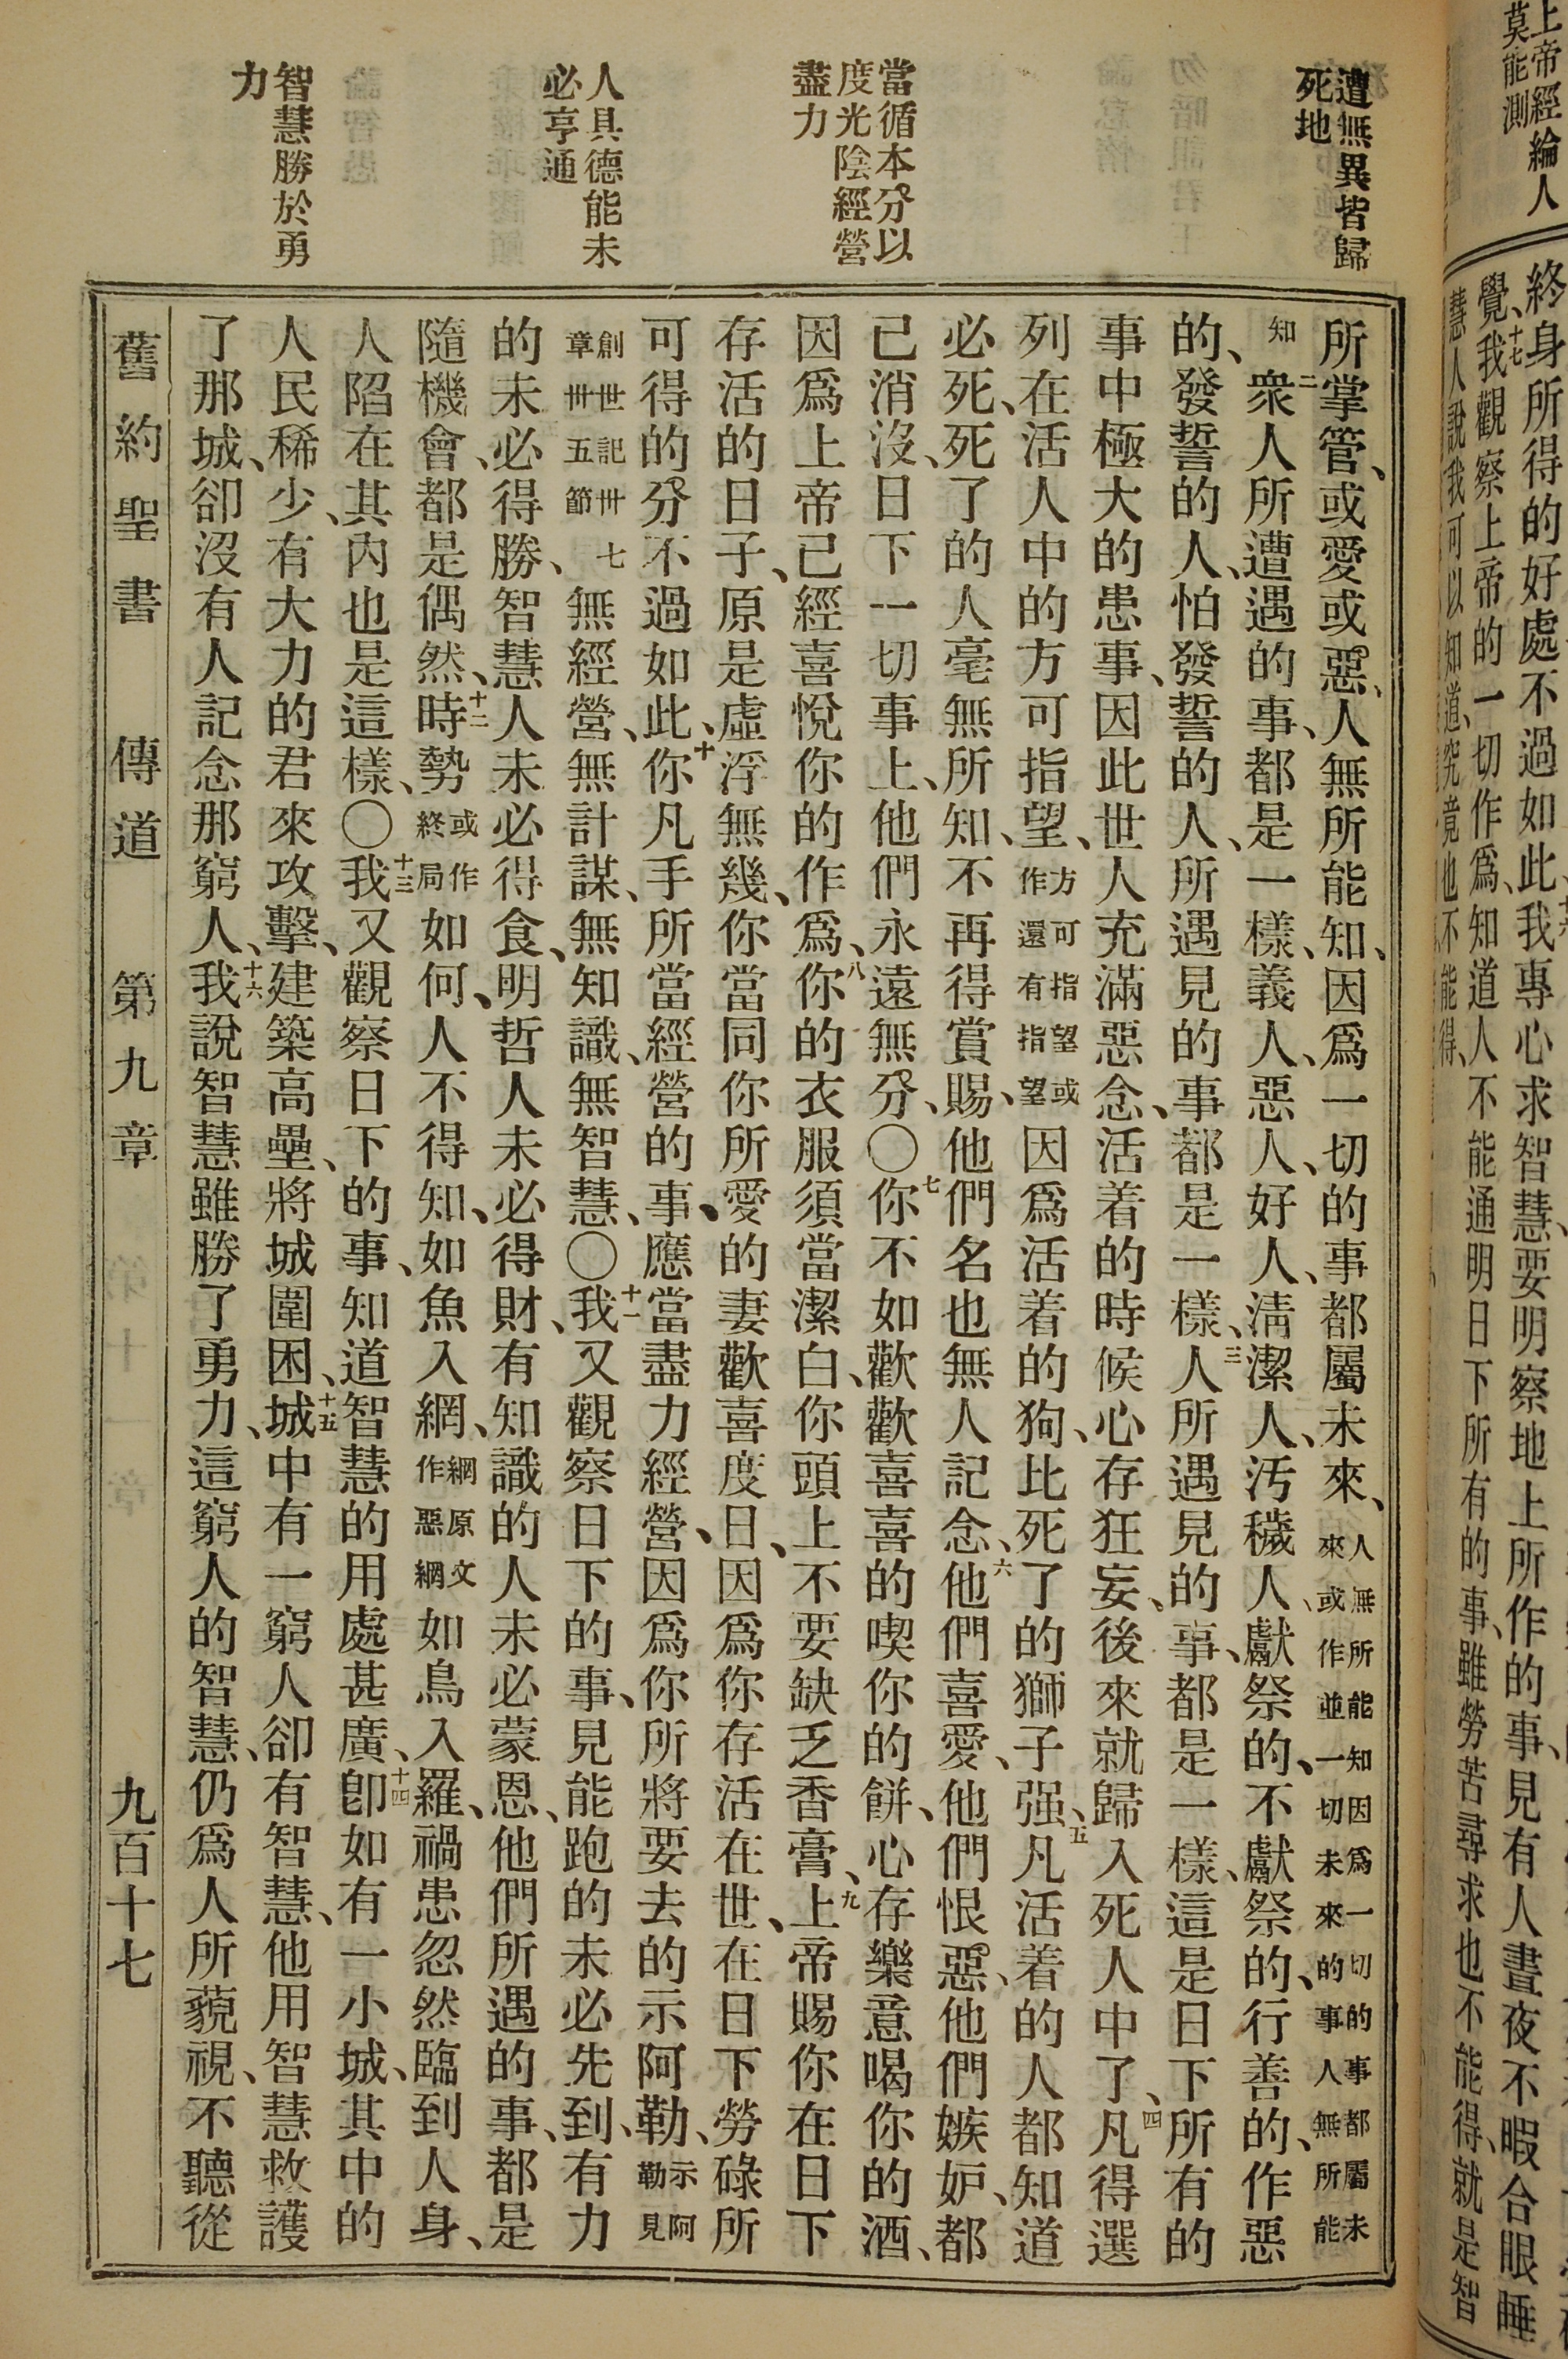 上帝經綸人
莫能測
終身所得的好處不過如此、我專心求智慧、要明察地上所作的事、見有人晝夜不暇合眼睡
覺、十七我觀察上帝的一切作爲、知道人不能通明日下所有的事、雖勞苦尋求也不能得、就是智
慧人說我可以知道、究竟也不能得、
遭無異皆歸
死地
當循本分以
度光陰經營
盡力
人具德能未
必亨通
智慧勝於勇
力
所掌管、或愛或惡、人無所能知、因爲一切的事都屬未來、人無所能知因爲一切的事都屬未來或作並一切未來的事人無所能
知二衆人所遭遇的事、都是一樣、義人、惡人、好人、淸潔人、汚穢人、獻祭的、不獻祭的、行善的、作惡
的、發誓的人、怕發誓的人、所遇見的事都是一樣、三人所遇見的事、都是一樣、這是日下所有的
事中極大的患事、因此世人充滿惡念、活着的時候心存狂妄、後來就歸入死人中了、四凡得選
列在活人中的方可指望、方可指望或作還有指望因爲活着的狗、比死了的獅子强、五凡活着的人都知道
必死、死了的人毫無所知、不再得賞賜、他們名也無人記念、六他們喜愛、他們恨惡、他們嫉妒、都
已消沒、日下一切事上、他們永遠無分、〇七你不如歡歡喜喜的喫你的餅、心存樂意喝你的酒、
因爲上帝已經喜悅你的作爲、八你的衣服須當潔白、你頭上不要缺乏香膏、九上帝賜你在日下
存活的日子、原是虛浮無幾、你當同你所愛的妻歡喜度日、因爲你存活在世、在日下勞碌所
可得的分不過如此、十你凡手所當經營的事、應當盡力經營、因爲你所將要去的示阿勒、示阿勒見
創世記卅七章卅五節無經營、無計謀、無知識、無智慧、〇十一我又觀察日下的事、見能跑的未必先到、有力
的未必得勝、智慧人未必得食、明哲人未必得財、有知識的人未必蒙恩、他們所遇的事、都是
隨機會、都是偶然、十二時勢或作終局如何、人不得知、如魚入網、網原文作惡網如鳥入羅、禍患忽然臨到人身、
人陷在其內也是這樣、〇十三我又觀察日下的事、知道智慧的用處甚廣、十四卽如有一小城、其中的
人民稀少、有大力的君來攻擊、建築高壘、將城圍困、十五城中有一窮人卻有智慧、他用智慧救護
了那城、卻沒有人記念那窮人、十六我說智慧雖勝了勇力、這窮人的智慧、仍爲人所藐視、不聽從
舊約聖書 傳道 第九章 九百十七